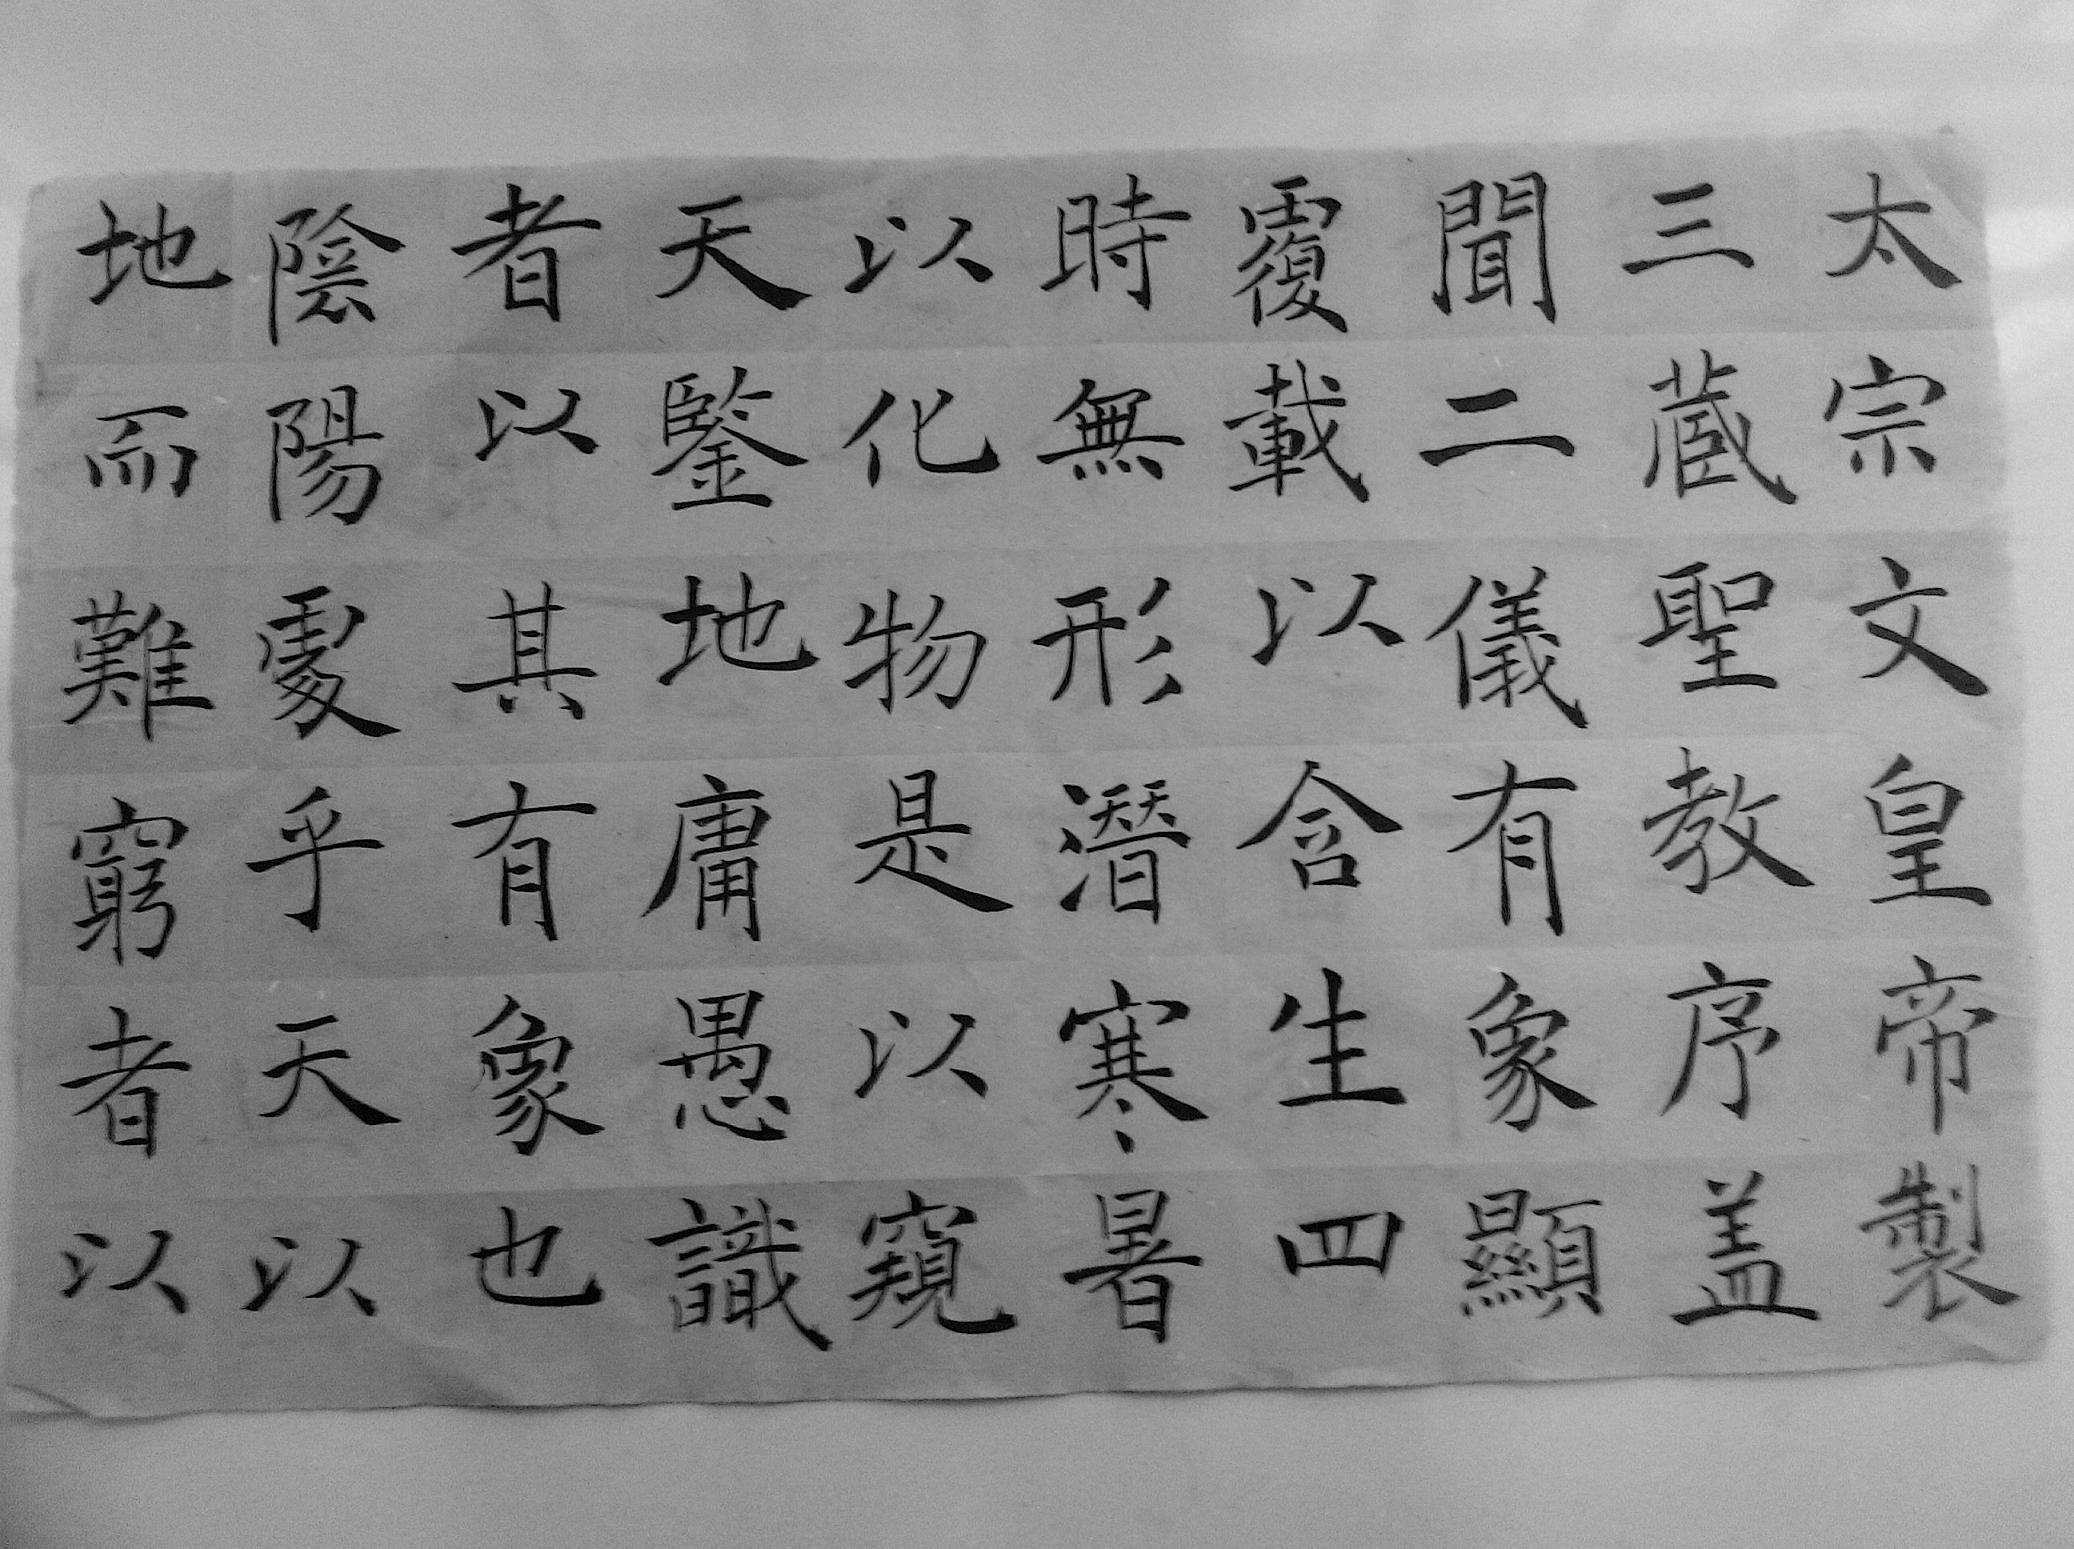 太宗文皇帝製
三蔵聖教序盖
聞二儀有象顯
覆載以含生四
時無形潛寒暑
以化物是以窺
天鑒地庸愚識
者以其有象也
陰陽處乎天以
地而難窮者以